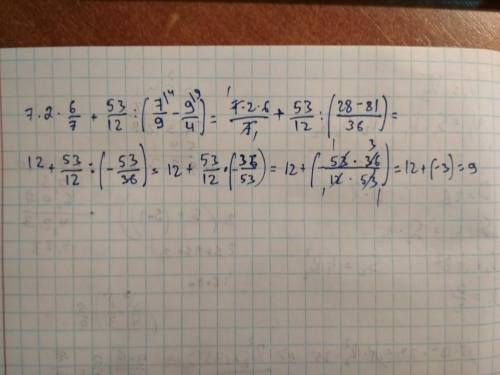 7·2·6/7 + 53/12 : (7\4/9 - 9\9/4) = 7·2·6/7 + 53/12 : (28-81/36) =
12 + 53/12 : (-53/36) = 12 + 53/12 · (-36/53) = 12 + (-53·36/12·53) = 12 + (-3) = 9